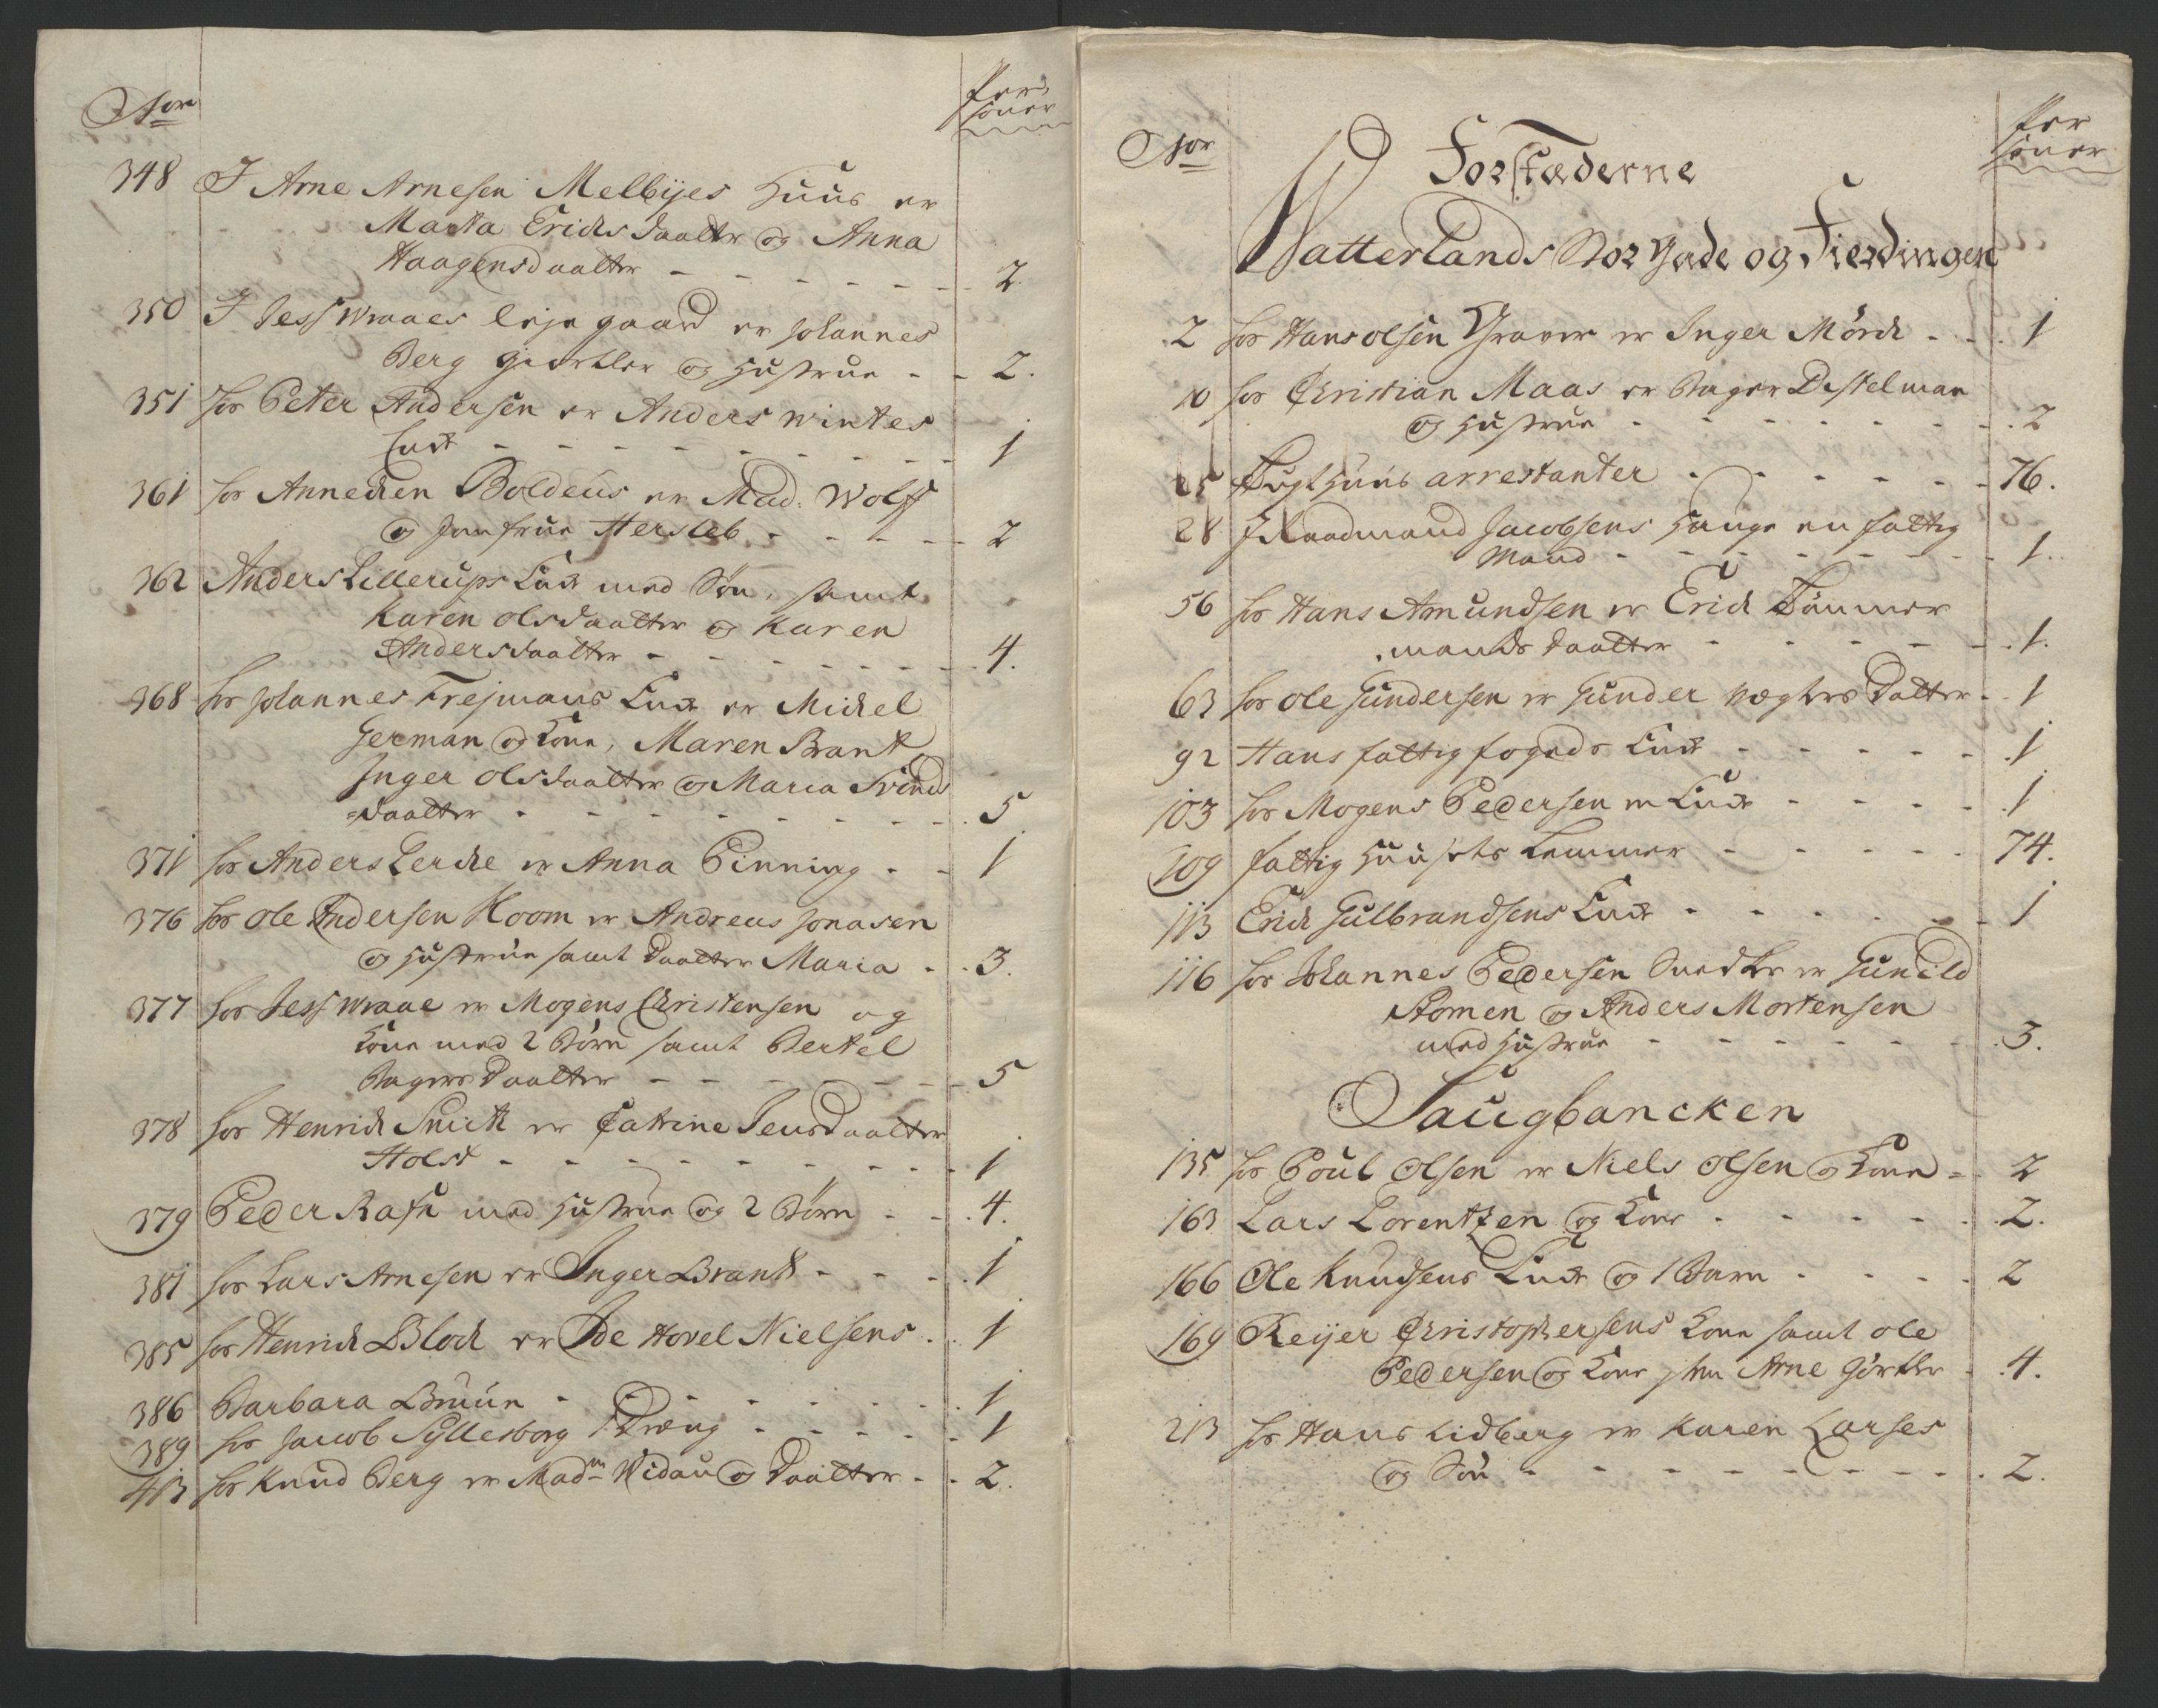 Nor
Per
soner
348 I Arne Arnesen Melbijes Huus er
Marta Erichsdaatter og Anna
Haagensdaatter - - - - - - 2
350 I Jess Wraaes leje gaard er Johannes
Berg giørtler og Hustrue - - 2.
351 hos Peter Andersen er Anders wintes
Enke - - - - - - - - 1
361 hos Annecken Boldeus er Mad: Wolff
og Jomfrue Hersleb - - - - 2
362 Anders Lillerups Enke med Søn, samt
Karen olsdaatter og Karen
Andersdaatter - - - - - - 4.
368 hos Johannes Trejmans Enke er Michel
German og Kone, Maren Brant
Inger olsdaatter og Maria Svends
=daatter - - - - - - - - 5
371 hos Anders Lerche er Anna Pinning - - 1
376 hos Ole Andersen Koom er Andreas Jonasen
og Hustrue samt Daatter Maria - - 3.
377 hos Jess Wraae er Mogens Christensen og
Kone med 2 Børn samt Bertel
Bagers Daatter - - - - - - 5
378 hos Henrich Smith er Catrine Jensdaatter
Holst - - - - - - - - 1
379 Peder Rafn med Hustrue og 2 Børn - - 4.
381 hos Lars Arnesen er Inger Brandt - - - 1
385 hos Henrich Bloch er Ide Hovel Nielsens - 1
386 Barbara Bruun - - - - - - 1
389 hos Jacob Sÿllesborg 1 Dreng - - - - 1
413 hos Knud Berg er Madm Widau og Daatter - - 2.
Nor
Per
soner
Forstæderne
Watterlands Stor Gade og Fierdingen
2 hos Hans olsen Graver er Inger Mørch - - 1
10 hos Christian Maas er Bager Distelman
og Hustrue - - - - - - - 2
25 Tugthuus arrestanter - - - - - 76.
28 I Raadmand Jacobsens Hauge en fattig
Mand - - - - - - - 1.
56 hos Hans Amundsen er Erich Tømmer
mands Daatter - - - - - 1.
63 hos Ole Gundersen er Gunder Vægters Datter - 1
92 Hans fattig fogeds Enke - - - - - 1
103 hos Mogens Pedersen en Enke - - - - 1
109 fattig Huusets Lemmer - - - - - 74.
113 Erich Gulbrandsens Enke - - - - - 1
116 hos Johannes Pedersen Snedker er Gunild
Stomen og Anders Mortensen
med Hustrue - - - - - - 3.
Saugbancken
135 hos Poul Olsen er Niels Olsen og Kone - 2
163 Lars Lorentzen og Kone - - - - - 2.
166 Ole Knudsens Enke og 1 Barn - - - - 2
169 Reijer Christophersens Kone samt ole
Pedersen og Kone hos Arne Giørtler - 4.
213 hos Hans Lidberg er Karen Larses
og Søn - - - - - - - - 2.